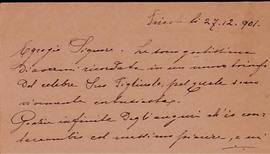 Trieste li 27.12.901.
Egregio Signore. La ringrazio tantissimo
d'avermi ricordata in un nuovo trionfo
del celebre Suo Figliuolo, pel quale sono
veramente entusiasta.
Grazie infinite degli auguri ch'io con-
traccambio col massimo piacere, e mi